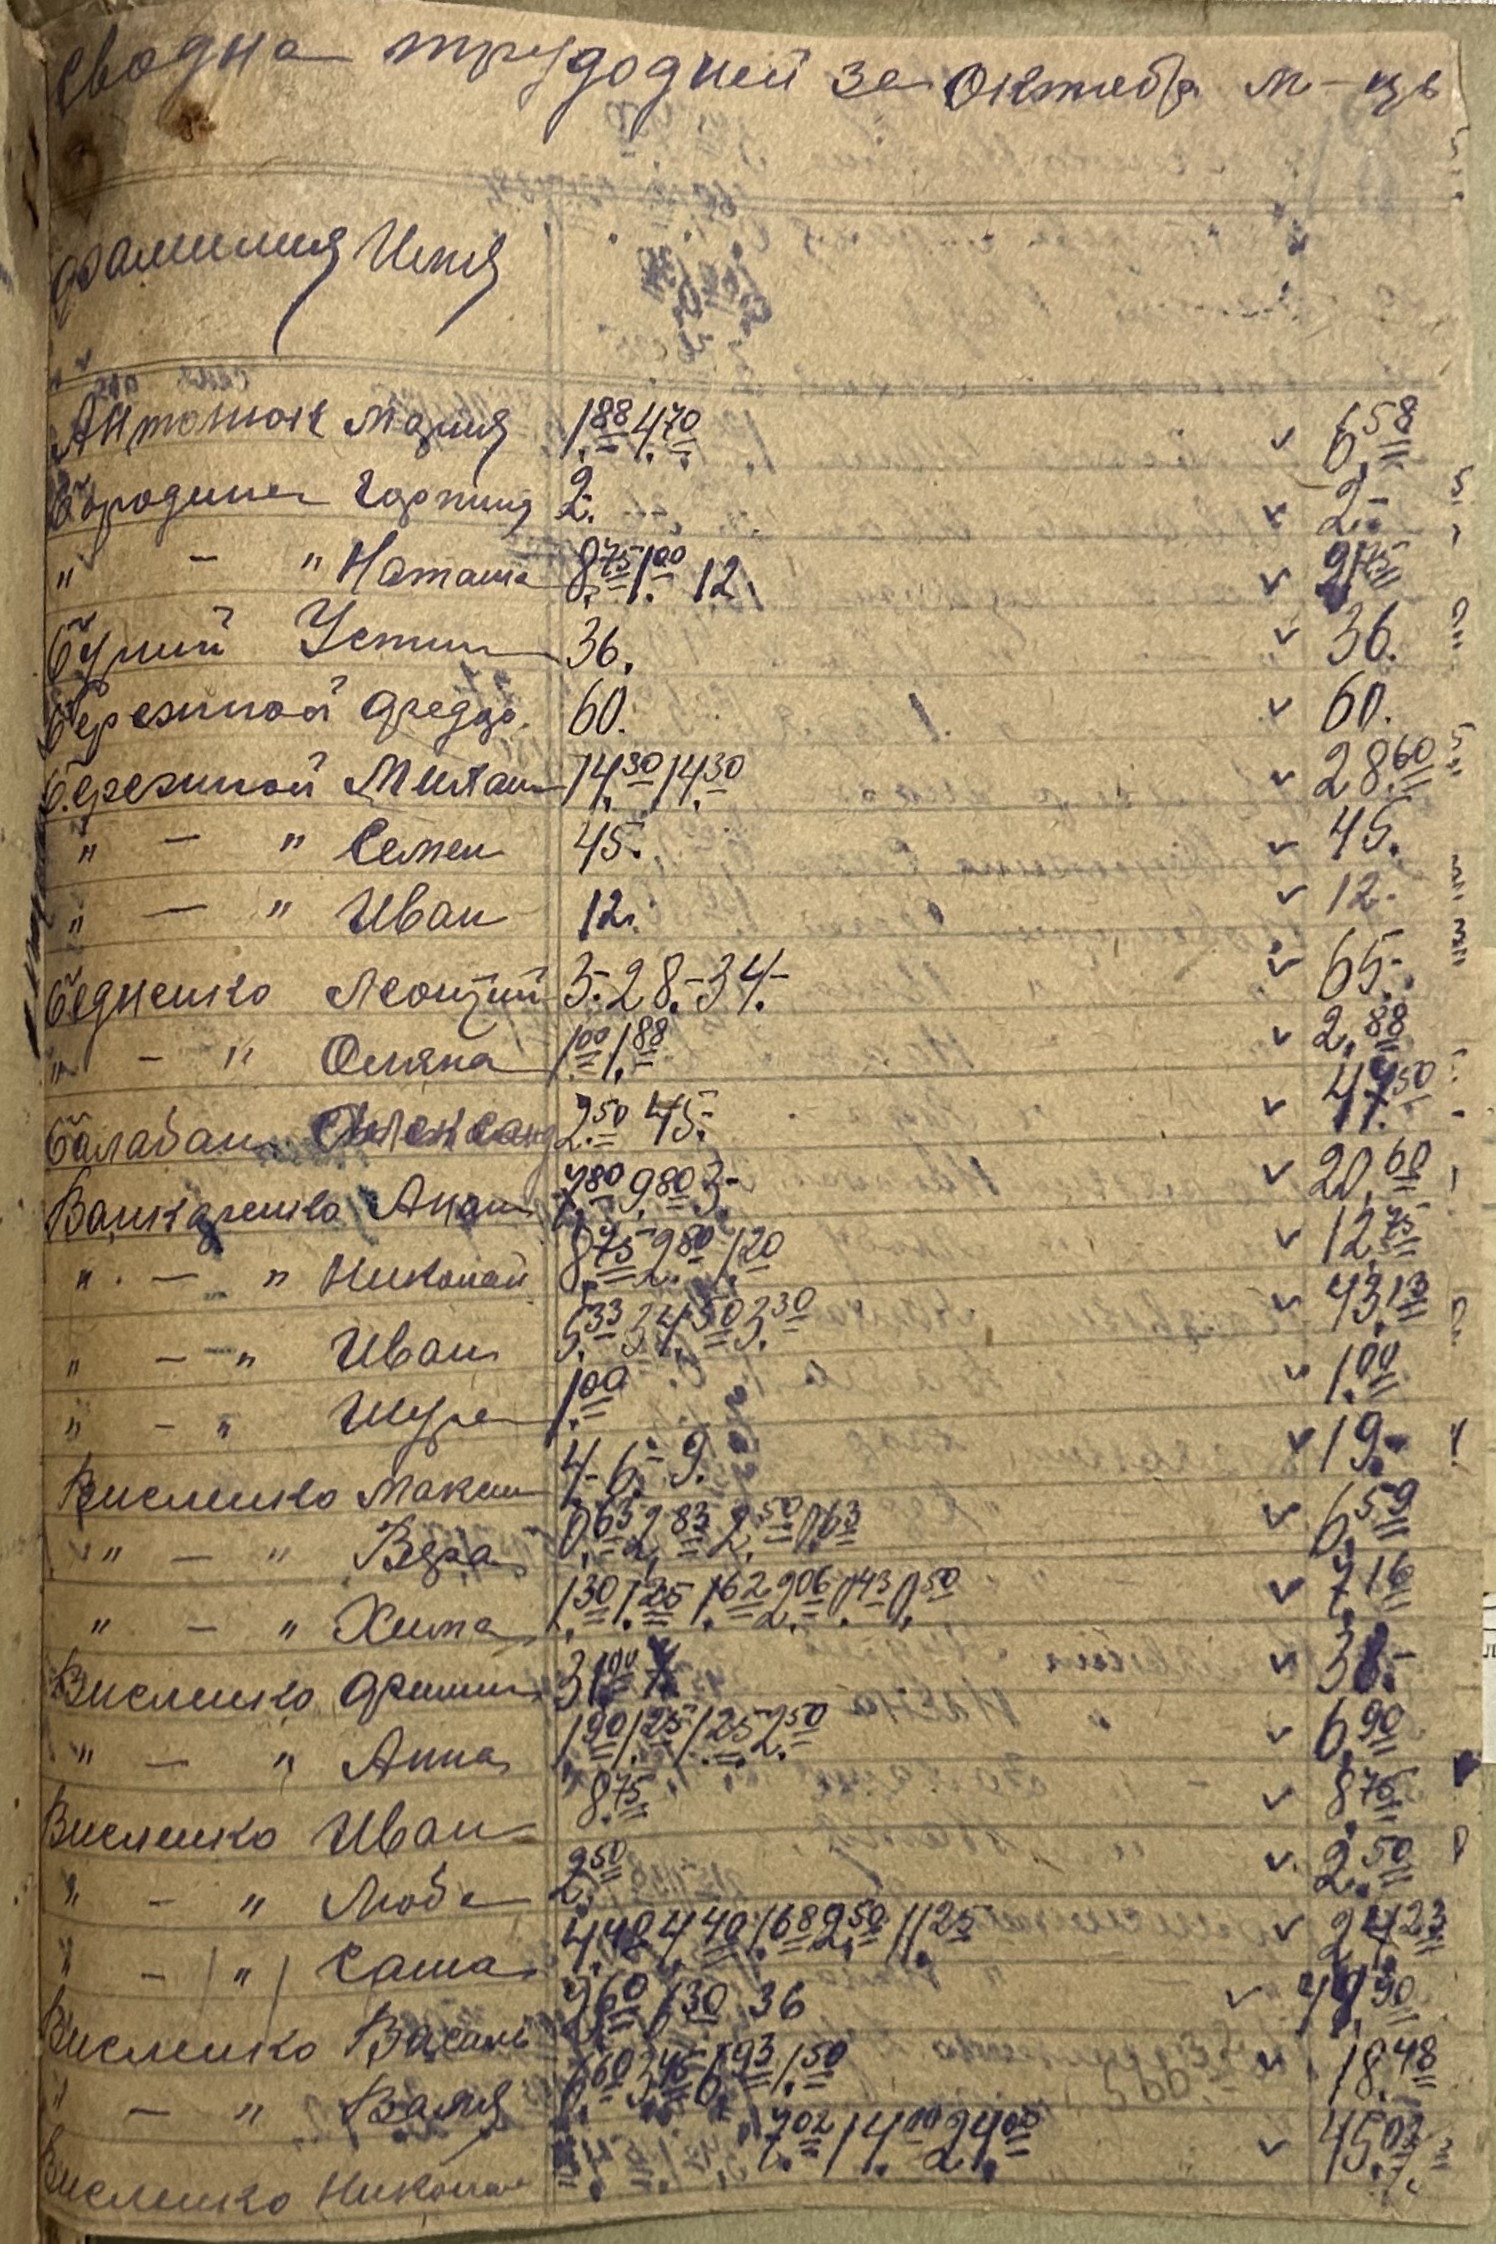 Сводка трудодней за Октябр м-ць
Фамилия Имя
Антонюк Мария 1.88 4.70 ✓ 6.58
Бородина Горпина 2. ✓ 2.-
" - " Наташа 8.75 1.00 12. ✓ 21.75
Бурий Устин 36. ✓ 36.
Бережной Федор. 60. ✓ 60.
Бережной Михаил 14.30 14.30 ✓ 28.60
" - " Семен 45. ✓ 45.
" - " Иван 12. ✓ 12.
Бедненко Леонтий 3.- 28.- 34.- ✓ 65.-
" - " Оляна 1.00 1.88 ✓ 2.88
Балабан Александ 2.50 45.- ✓ 47.50
7.80 9.80 3.- ✓ 20.60
" - " Николай 8.75 2.80 1.20 ✓ 12.75
" - " Иван 5.33 34.50 3.30 ✓ 43.13
" - " Шура 1.00 ✓ 1.00
Висленко Максим 4.- 6.- 9. ✓ 19.-
" - " Вера 0.63 2.83 2.50 0.63 ✓ 6.59
" - " Хима 1.30 1.25 1.62 2.06 0.43 0.50 ✓ 7.16
Висленко ✓
" - " Анна 1.90 1.25 1.25 2.50 ✓ 6.90
Висленко Иван 8.75 ✓ 8.75
" - " Люба 2.50 ✓ 2.50
" - " Саша 4.40 4.40 1.68 2.50 11.25 ✓ 24.23
Висленко Василь 7.60 1.30 36 ✓
" - " Валя 6.60 3.45 6.93 1.50 ✓ 18.48
Висленко Николай 7.02 14.00 24.00 ✓ 45.02